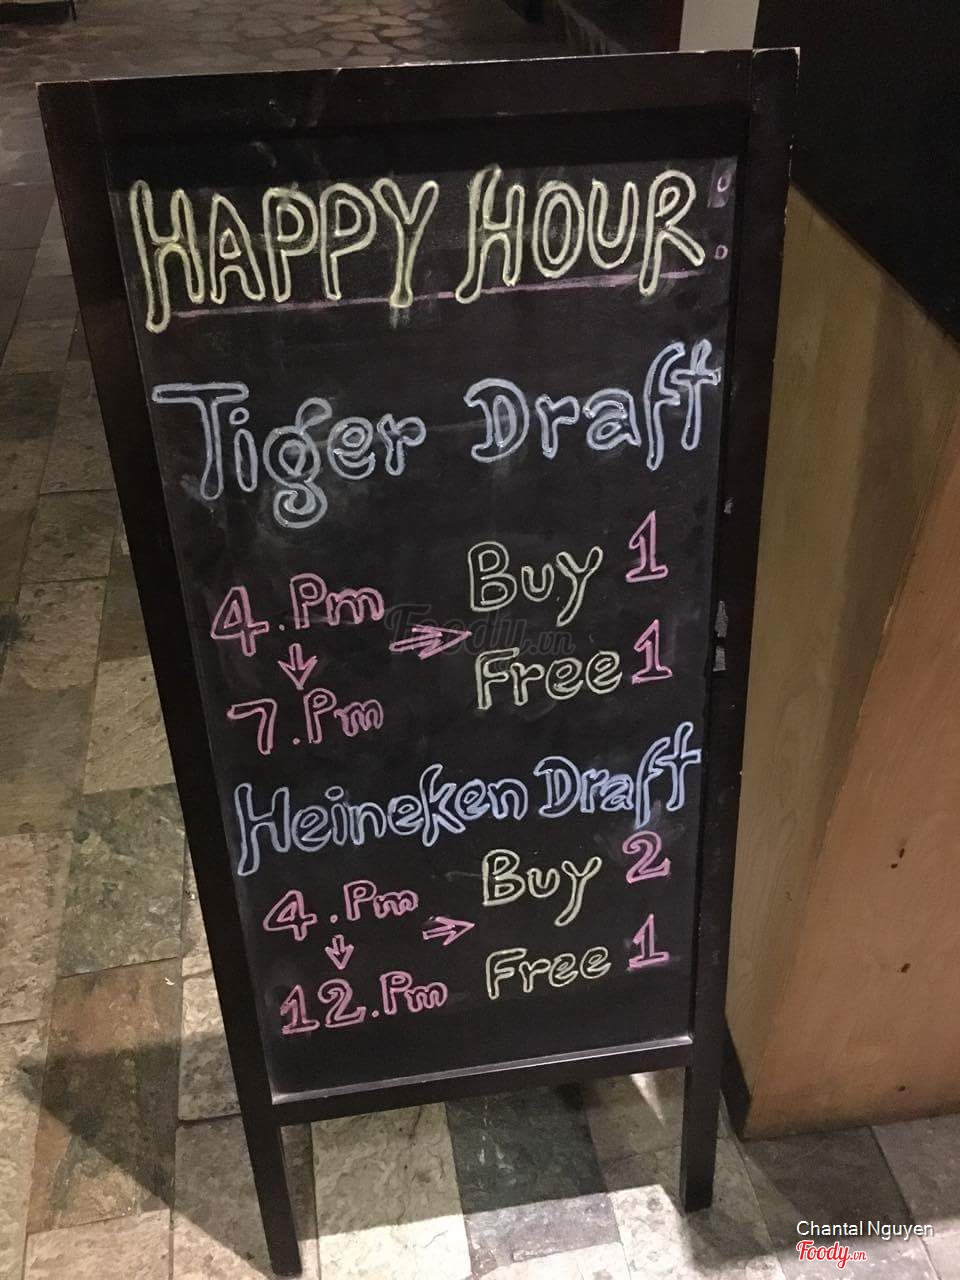 HAPPY HOUR
Tiger Draft
4.Pm
7.Pm
Buy 1
Free 1
Heineken Draft
4.Pm
12.Pm
Buy 2
Free 1
Foody.vn
Chantal Nguyen
Foody.vn